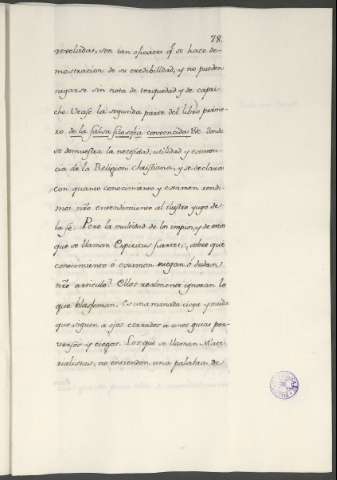 78.
reveladas, son tan eficaces q.e se hace de-
mostracion de su credibilidad, y no pueden
negarse sin nota de terquedad y de capri-
cho. Vease la segunda parte del libro prime-
ro de la falsa filosofia convencida &c. donde
se demuestra la necesidad, utilidad y esencia
de la Religion christiana, y se declara
con quanto conocimiento y examen rendi-
mos nřo entendimiento al ilustre yugo de
la fe. Pero la multitud de los impios, y de estos
que se llaman Espiritus fuertes, sobre que
conocimiento ó examen niegan ó dudan
nřos articulos? Ellos realmente ignoran lo
que blasfeman. Es una manada ciega y ruda
que siguen a ojos cerrados a unos guias per-
versos y ciegos. Los que se llaman Mate-
rialistas, no entienden una palabra de